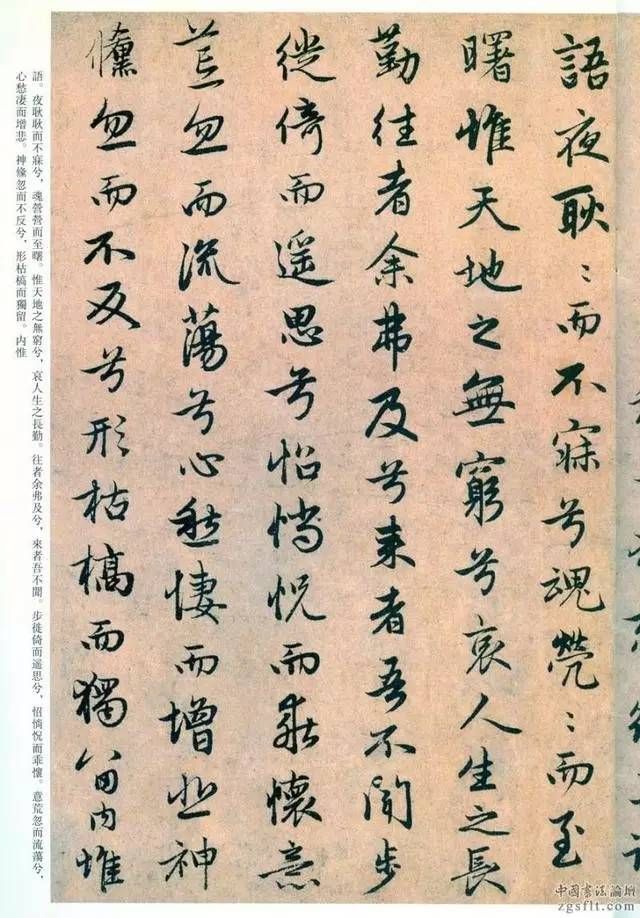 語夜耿〻而不寐兮魂煢〻而至
曙惟天地之無窮兮哀人生之長
勤往者余弗及兮来者吾不聞步
徙倚而遥思兮怊惝怳而乖懷意
荒忽而流蕩兮心愁悽而增悲神
儵忽而不反兮形枯槁而獨留内惟
語。夜耿耿而不寐兮，魂營營而至曙。惟天地之無窮兮，哀人生之長勤。往者余弗及兮，來者吾不聞。步徙倚而遥思兮，怊惝怳而乖懷。意荒忽而流蕩兮，
心愁凄而增悲。神倏忽而不反兮，形枯槁而獨留。内惟
中國書法論壇
zgsflt.com